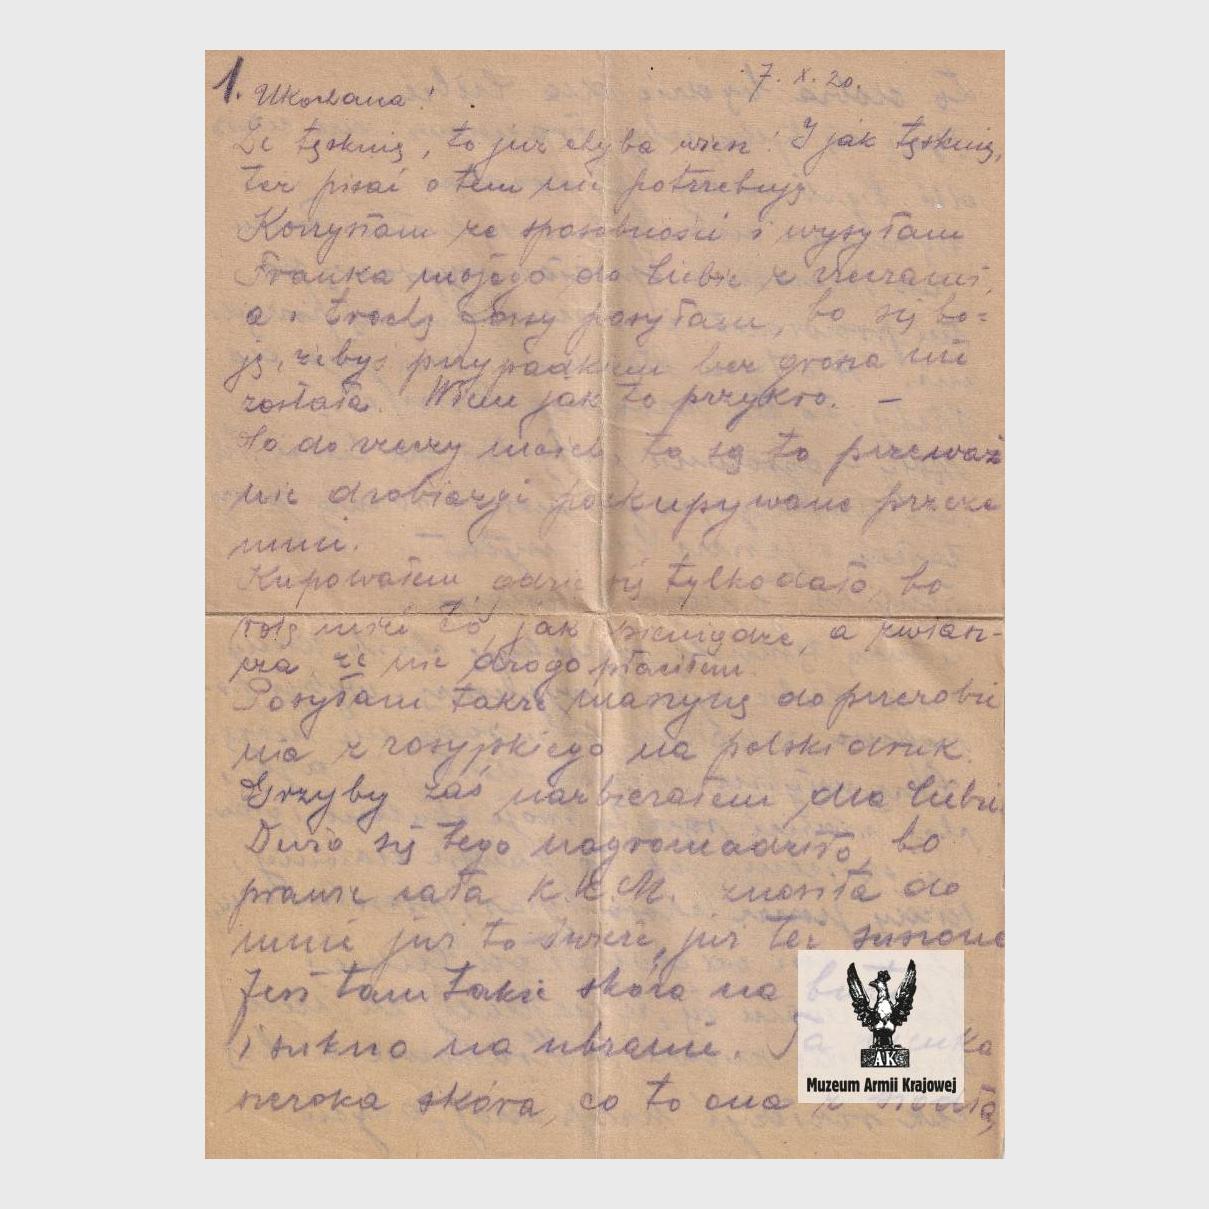 1. 7. X. 20.
Ukochana!
Że tęsknię, to już chyba wiesz! I jak tęsknię,
też pisać o tem nie potrzebuję.
Korzystam ze sposobności i wysyłam
Franka mojego do Ciebie z rzeczami,
a i trochę forsy posyłam, bo się bo=
ję, żebyś przypadkiem bez grosza nie
została. Wiem jak to przykro. –
Co do rzeczy moich, to są to przeważ
nie drobiazgi pokupywane przeze
mnie.
Kupowałem gdzie się tylko dało, bo
wolę mieć to, jak pieniądze, a zwłasz-
cza że nie drogo płaciłem.
Posyłam także maszynę do przerobie
nia z rosyjskiego na polski druk.
Grzyby zaś nazbierałem dla Ciebie.
Dużo się tego nagromadziło, bo
prawie cała K.K.M. znosiła do
mnie już to świeże, już też suszone
Jest tam także skóra na
i sukno na ubranie. Ta
szeroka skóra, co to ona z siodła,
AK
Muzeum Armii Krajowej